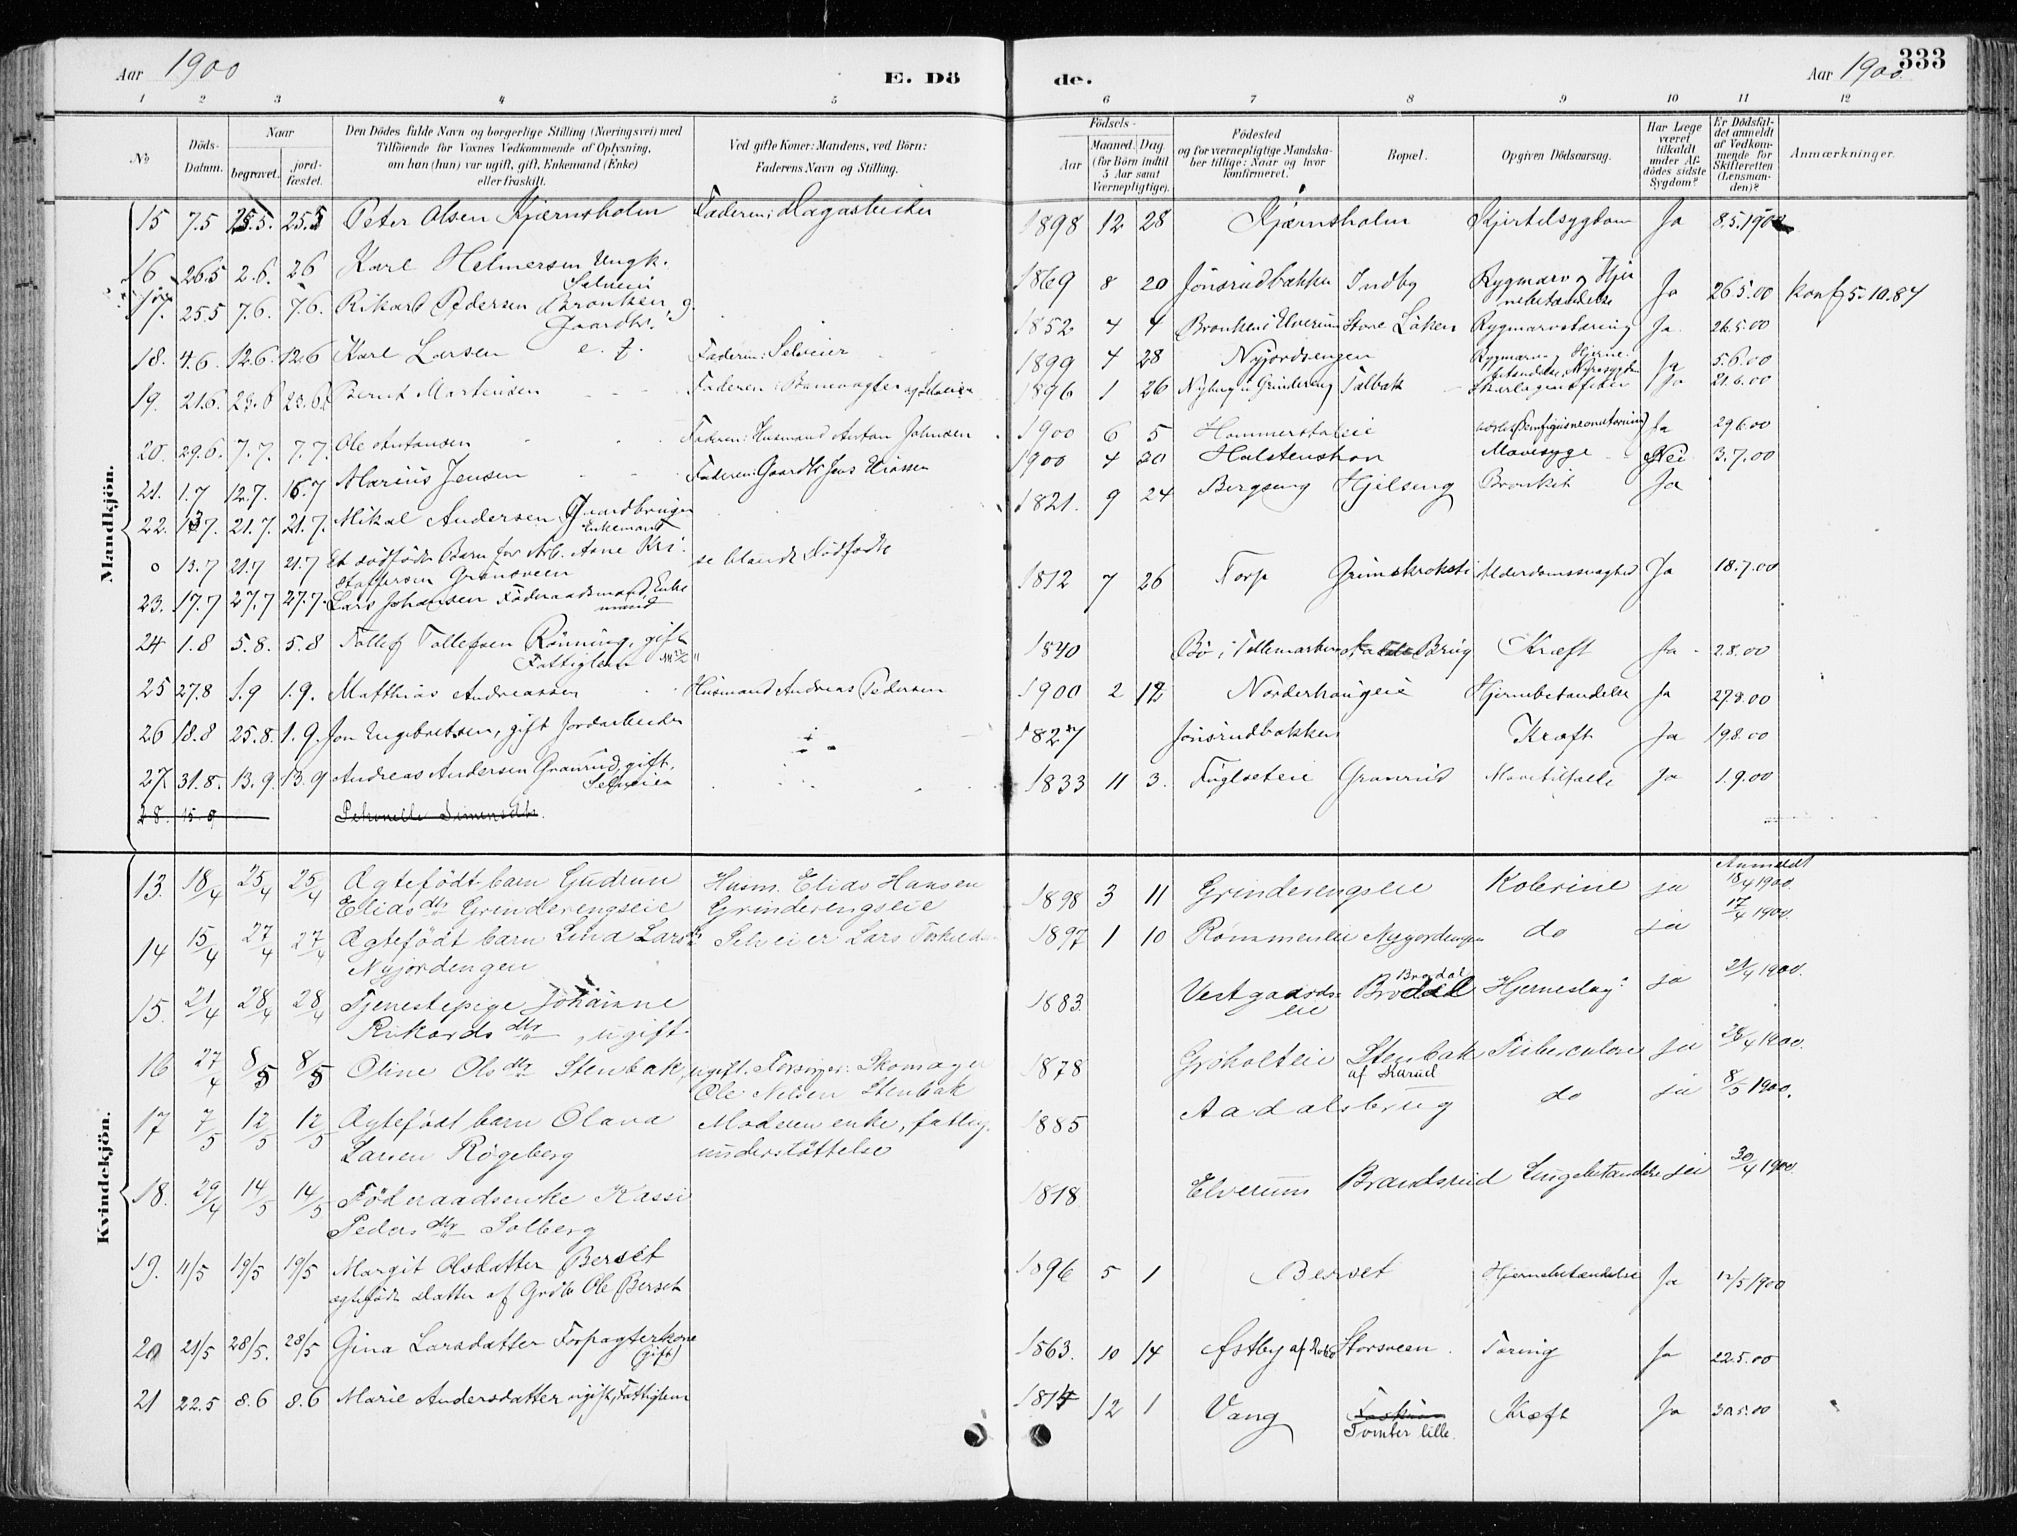 333
Aar 1900 E. Dö de. Aar 1900
1 2 3 4 5 6 7 8 9 10 11 12
No
Döds-Datum.
Naar
begravet.
jordfæstet.
Den Dödes fulde Navn og borgerlige Stilling (Næringsvei) med
Tilföiende for Voxnes Vedkommende af Oplysning,
om han (hun) var ugift, gift, Enkemand (Enke)
eller fraskilt.
Ved gifte Koner: Mandens, ved Börn:
Faderens Navn og Stilling.
Födsels-
Aar
Maaned. Dag.
(for Börn indtil
5 Aar samt
Værnepligtige).
Födested
og for værnepligtige Mandskaber tillige: Naar og hvor
konfirmeret.
Bopæl.
Opgiven Dödsaarsag.
Har Læge
været
tilkaldt
under Afdödes sidste
Sygdom?
Er Dödsfaldet anmeldt
af Vedkommende for
Skifteretten
(Lensmanden)?
Anmærkninger.
Mandkjön.
15 7.5 25.5. 25.5 Peter Olsen Kjærnsholm Faderen: Dagarbeider 1898 12 28 Kjærnsholm Kjertelsygdom Ja 8.5.1900
16 26.5 2.6. 2 6 Karl Helmersen Ungk. Selveier 1869 8 20 Jönsrudbakken Indby Rygmarv og Hjernebetændelse Ja 26.5.00 konf 5.10.84
17. 25.5 7.6. 7.6. Rikard Pedersen Bronken, g. Gaardbr. 1852 4 4 Bronken i Elverum Store Löken Rygmarvstæring Ja 26.5.00
18. 4.6. 12.6. 12.6 Karl Larsen e. f. Faderen: Selveier 1899 4 28 Nyjordsengen Rygmarv og Hjernebetændelse, Nyresygdom Ja 5.6.00
19. 21.6. 23.6 23.6 Bernt Martinsen Faderen: Banevogter og Selveier 1896 1 26 Nyberg u Grindereng Tælbak Skarlagensfeber Ja 21.6.00
20. 29.6. 7.7. 7.7. Ole Antonsen Faderen: Husmand Anton Johnsen 1900 6 5 Hommerstadeie Ja 29.6.00
21. 1.7 12.7. 15.7 Marius Jensen Faderen: Gaardbr Jens 1900 4 20 Halstenshov Mavesyge Nei 3.7.00
22. 13.7. 21.7. 21.7. Mikal Andersen, Gaardbruger Enkemand 1821. 9 24 Bergseng Hjelseng Bronkit Ja
0 13.7 21.7 21.7 Et dödfödt Barn for Arb. Arne Kristoffersen Grönsveen se blandt Dödfödte
23. 17.7 27.7 27.7. Lars Johansen Föderaadsmand, Enkemand 1812 7 26 Torp Grimskroksti Alderdomssvaghed Ja 18.7.00
24 1.8 5.8. 5.8 Tollef Tollefsen Rönning, gift Fattiglem 1840 Bö i Tellemarken Brug Kræft Ja 2.8.00
25 27.8 1.9 1.9. Matthias Andreassen Husmand Andreas Pedersen 1900 2 12 Norderhaugeie Hjernebetændelse Ja 27.8.00
26 18.8 25.8. 1.9. Jon Engebretsen, gift Jordarbeider 1827 Jönsrudbakken Kræft Ja 19.8.00
27. 31.8. 13.9. 13.9 Andreas Andersen Granrud, gift, Selveier 1833 11 3. Fuglseteie Granrud Mavetilfælde Ja 1.9.00
28. 15.9 Petronelle Simensdtr.
Kvindekjön.
13. 18/4 25/4 25/4 Ægtefödt barn Gudrun Husm. Elias Hansen 1898 3 11 Grinderengseie Kolerine ja Anmeldt 18/4 1900.
Eliasdtr Grinderengseie Grinderengseie
14 15/4 27/4 27/4 Ægtefödt barn Lina Larsdtr Selveier Lars 1897 1 10 Rommeneie Nyjordengen do ja 17/4 1900.
Nyjordengen
15. 21/4 28/4 28/4 Tjenestepige Johanne 1883. Vestgaardseie Brodal Brodal Hjerneslag ja 21/4 1900.
Rikardsdtr, ugift.
16 27/4 8/5 8/5 Oline Olsdtr Stenbak, ugift. Forsörger: Skomager 1878 Groholteie Stenbak af Skarud Tuberculose ja 28/4 1900.
Ole Nilsen Stenbak
17 7/5 12/5 12/5 Ægtefödt barn Olava Moderen enke, fattig- 1885 Aadalsbrug do ja 8/5 1900.
Larsen Rögeberg understöttelse
18. 29/4 14/5 14/5 Föderaadsenke Kassi 1818. Elverum Brandsrud Lungebetændelse ja 30/4 1900
Pedersdtr Solberg
19. 11/5 19/5 19/5 Margit Olsdatter Berset 1896 5 1 Berset Hjernebetændelse Ja 12/5 1900
ægtefödt Datter af Grdbr Ole Berset
20 21/5 28/5. 28/5 Gina Larsdatter Forpagterkone (gift) 1863. 10 14 Østby af Storsveen. Tæring Ja 22.5.00
21 22.5 8.6 8.6 Marie Andersdatter ugift, Fattiglem 1814 12 1 Vang Tomter lille. Kræft Ja 30.5.00